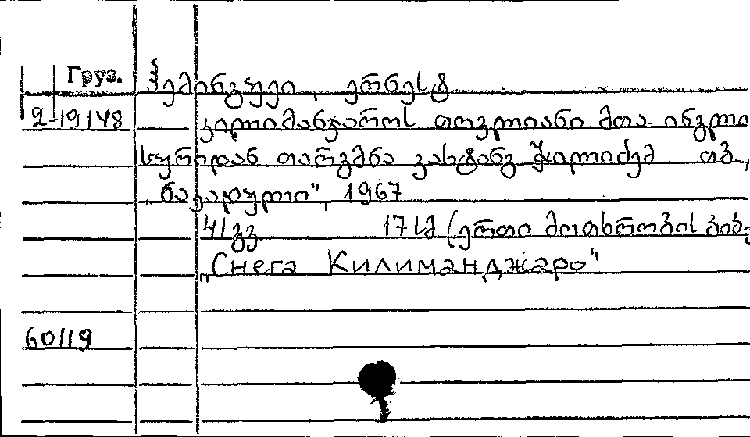 Груз. ჰემინგუეი, ერნესტ
2-19148 კილიმანჯაროს თოვლიანი მთა ინგლი
სურიდან თარგმნა ვახტანგ ჭელიძემ თბ.,
„ნაკადული", 1967
41 გვ 17 სმ (ერთი მოთხრობის წიგ
„Снега Килиманджаро"
60119